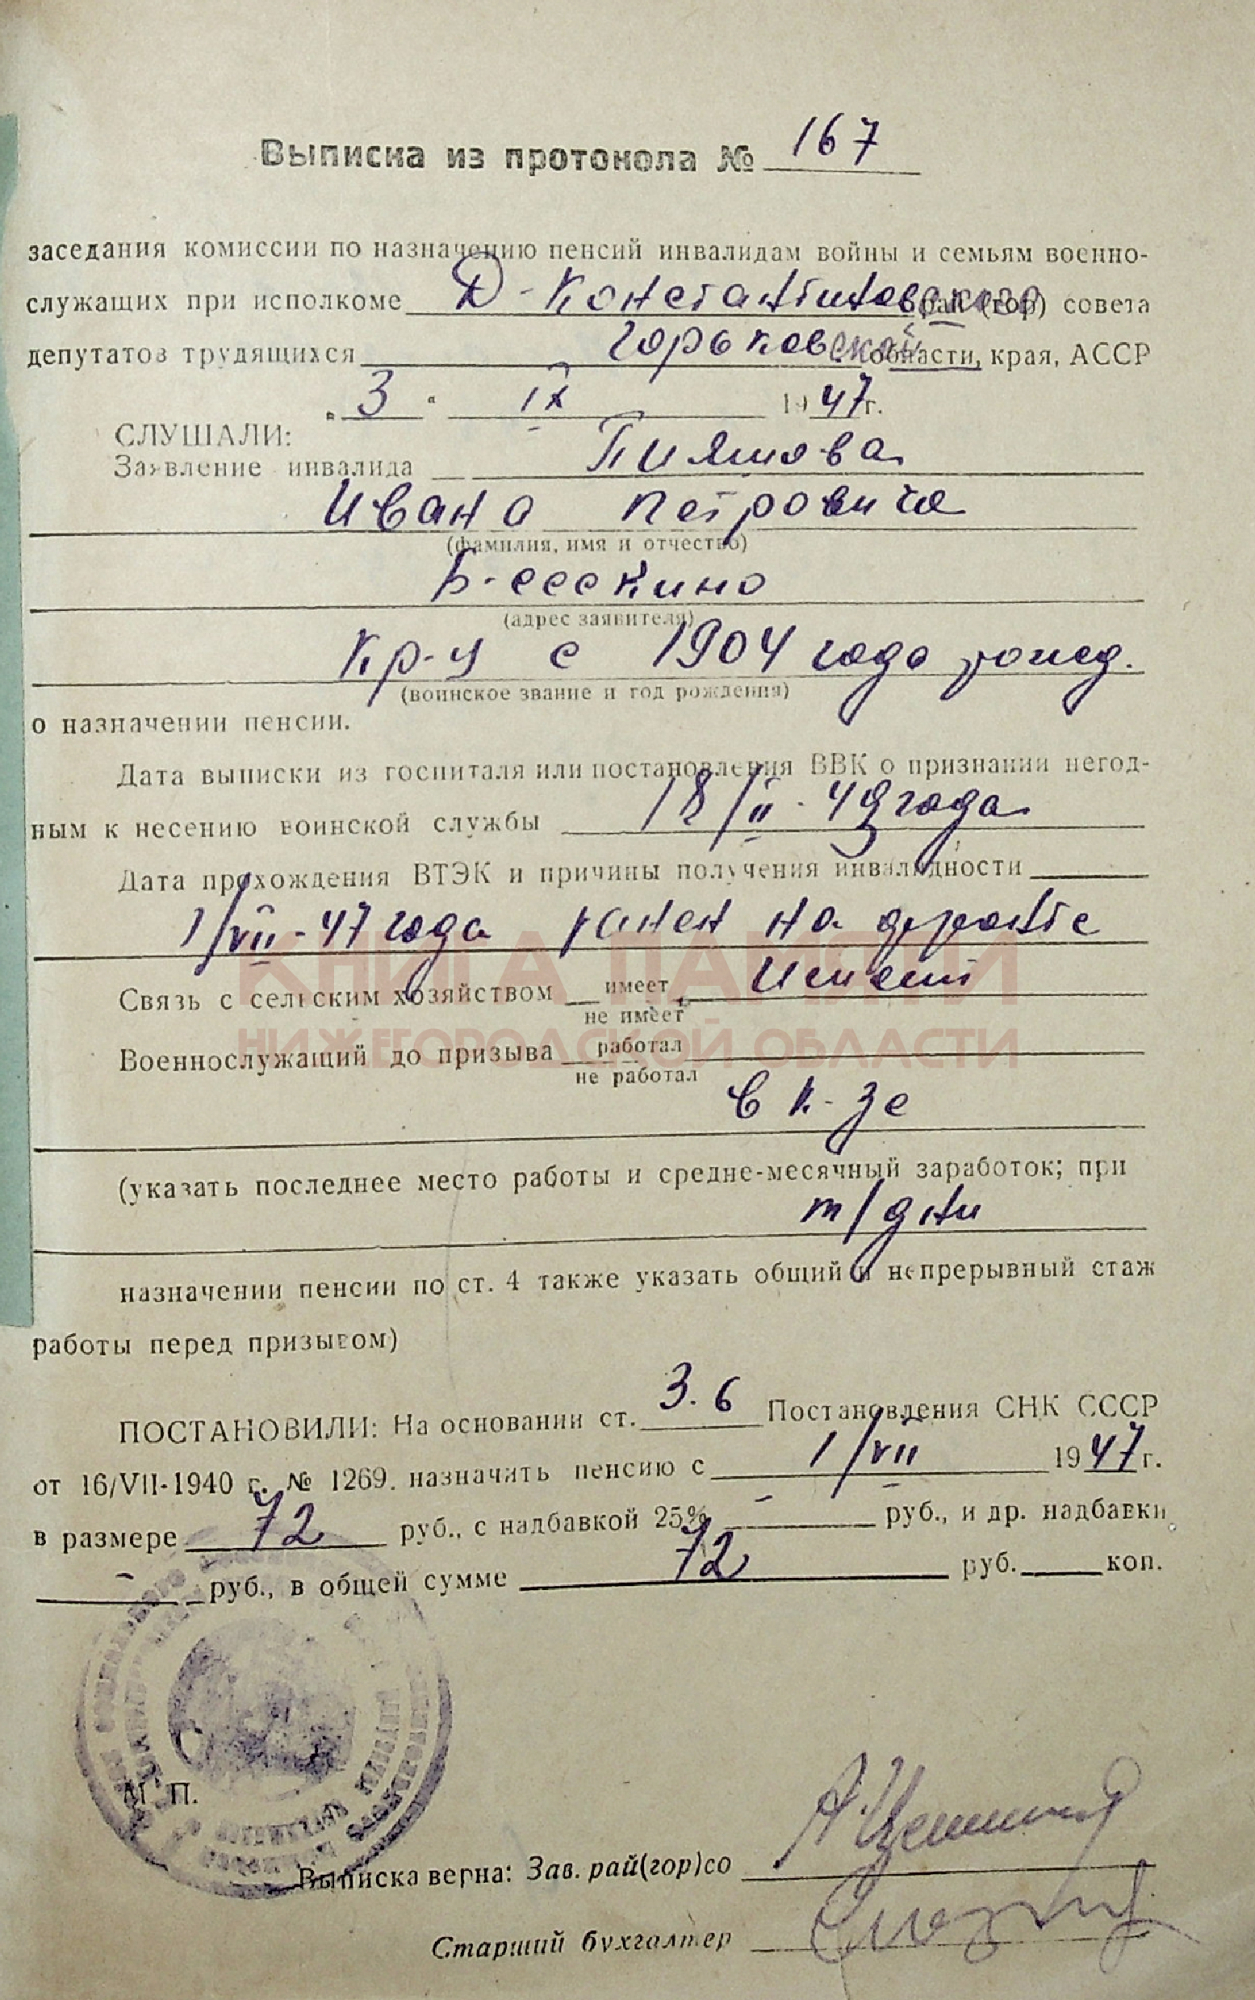 Выписка из протокола № 167
заседания комиссии по назначению пенсий инвалидам войны и семьям военно-
служащих при исполкоме Д-Константиновского рай (гор) совета
депутатов трудящихся Горьковской области, края, АССР
„ 3 “ IX 1947г.
СЛУШАЛИ:
Заявление инвалида Пияшова
Ивана Петровича
(фамилия, имя и отчество)
Б-Сескино
(адрес заявителя)
Кр-ц с 1904 года рожд.
(воинское звание и год рождения)
о назначении пенсии.
Дата выписки из госпиталя или постановления ВВК о признании негод-
ным к несению воинской службы 18/II - 49 года
Дата прохождения ВТЭК и причины получения инвалидности
1/VII - 47 года ранен на фронте
Связь с сельским хозяйством имеет Имеет
не имеет
КНИГА ПАМЯТИ
НИЖЕГОРОДСКОЙ ОБЛАСТИ
Военнослужащий до призыва работал
не работал
в к-зе
(указать последнее место работы и средне-месячный заработок; при
т/дни
назначении пенсии по ст. 4 также указать общий и непрерывный стаж
работы перед призывом)
ПОСТАНОВИЛИ: На основании ст. 3.6 Постановления СНК СССР
от 16/VII-1940 г. № 1269. назначить пенсию с 1/VII 1947г.
в размере 72 руб., с надбавкой 25% - руб., и др. надбавки
- руб., в общей сумме 72 руб. коп.
М. П.
Выписка верна: Зав. рай(гор)со
Старший бухгалтер